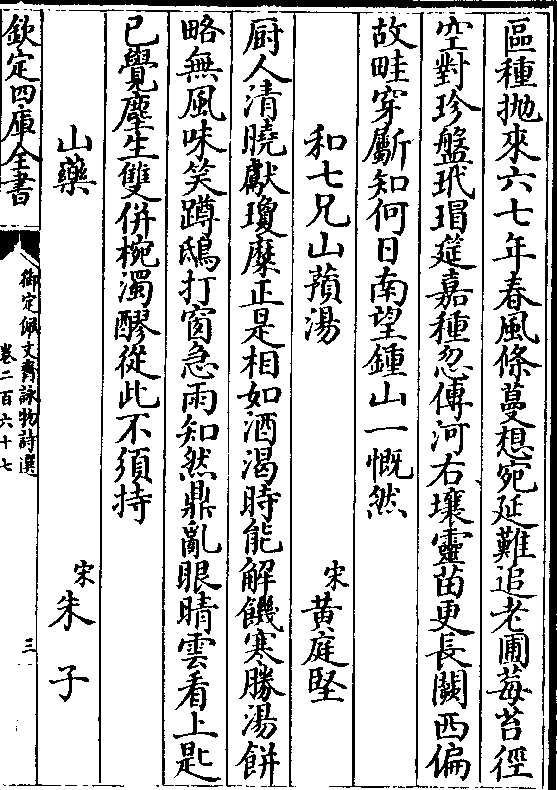 區種抛來六七年春風條蔓想宛延難追老圃莓苔徑
空對珍盤玳瑁筵嘉種忽傳河右壤靈苗更長闕西偏
故畦穿斸知何日南望鍾山一慨然
和七兄山蕷湯　宋黃庭堅
厨人清曉獻瓊糜正是相如酒渴時能解饑寒勝湯餅
略無風味笑蹲鴟打窗急雨知然鼎亂眼晴雲看上匙
已覺塵生雙併椀濁醪從此不須持
山藥　宋朱子
欽定四庫全書
御定佩文齋詠物詩選
卷二百六十七
三